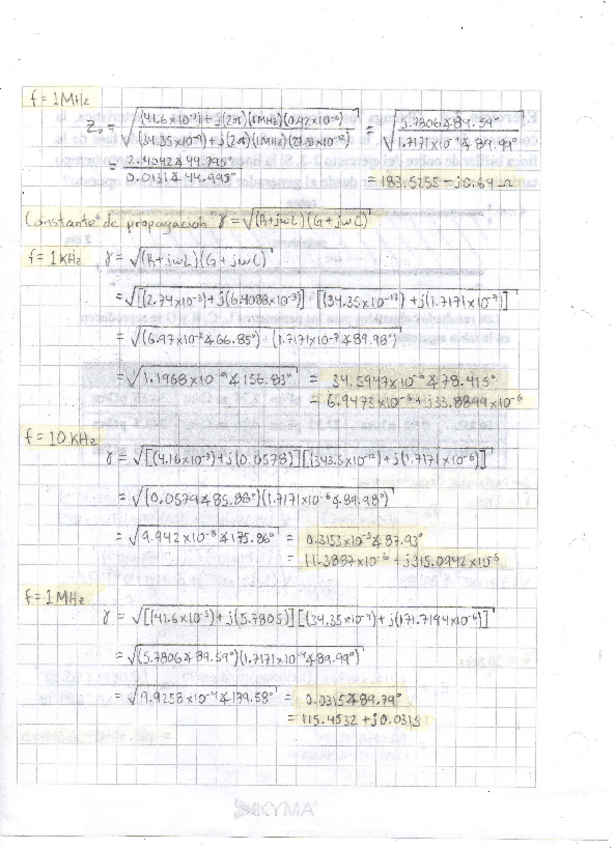 f = 1MHz
Z₀ = √((41.6x10⁻³)+j(2π)(1MHz)(0.92x10⁻⁶) / (34.35x10⁻⁹)+j(2π)(1MHz)(27.33x10⁻¹²)) = √(5.7806∡89.59° / 1.7171x10⁻⁴∡89.99°)
= 2.4042∡44.795° / 0.0131∡44.995° = 183.5255 - j0.64 Ω
Constante de propagación γ = √(R+jωL)(G+jωC)
f = 1KHz γ = √(R+jωL)(G+jωC)
= √[(2.74x10⁻³)+j(6.4088x10⁻³)] [(34.35x10⁻¹²)+j(1.7171x10⁻⁷)]
= √(6.97x10⁻³∡66.85°) (1.7171x10⁻⁷∡89.98°)
= √1.1968x10⁻⁹∡156.83° = 34.5947x10⁻⁶∡78.415°
= 6.9473x10⁻⁶ + j33.8899x10⁻⁶
f = 10 KHz
γ = √[(4.16x10⁻³)+j(0.0578)][(343.5x10⁻¹²)+j(1.7171x10⁻⁶)]
= √(0.0579∡85.88°)(1.7171x10⁻⁶∡89.98°)
= √9.942x10⁻⁸∡175.86° = 0.3153x10⁻³∡87.93°
= 11.3887x10⁻⁶ + j315.0942x10⁻⁶
f = 1MHz
γ = √[(41.6x10⁻³)+j(5.7805)][(34.35x10⁻⁹)+j(171.7194x10⁻⁶)]
= √(5.7806∡89.59°)(1.7171x10⁻⁴∡89.99°)
= √9.9258x10⁻⁴∡179.58° = 0.0315∡89.79°
= 115.4532 + j0.0315